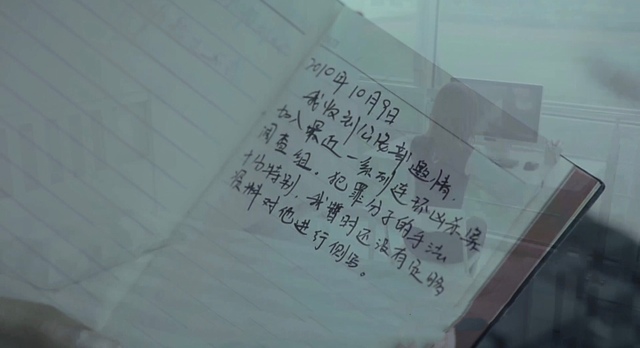 2010年10月9日
我收到公安部邀请.
加入最近一系列连环凶杀案
调查组. 犯罪分子的手法
十分特别. 我暂时还没有足够
资料对他进行侧写。